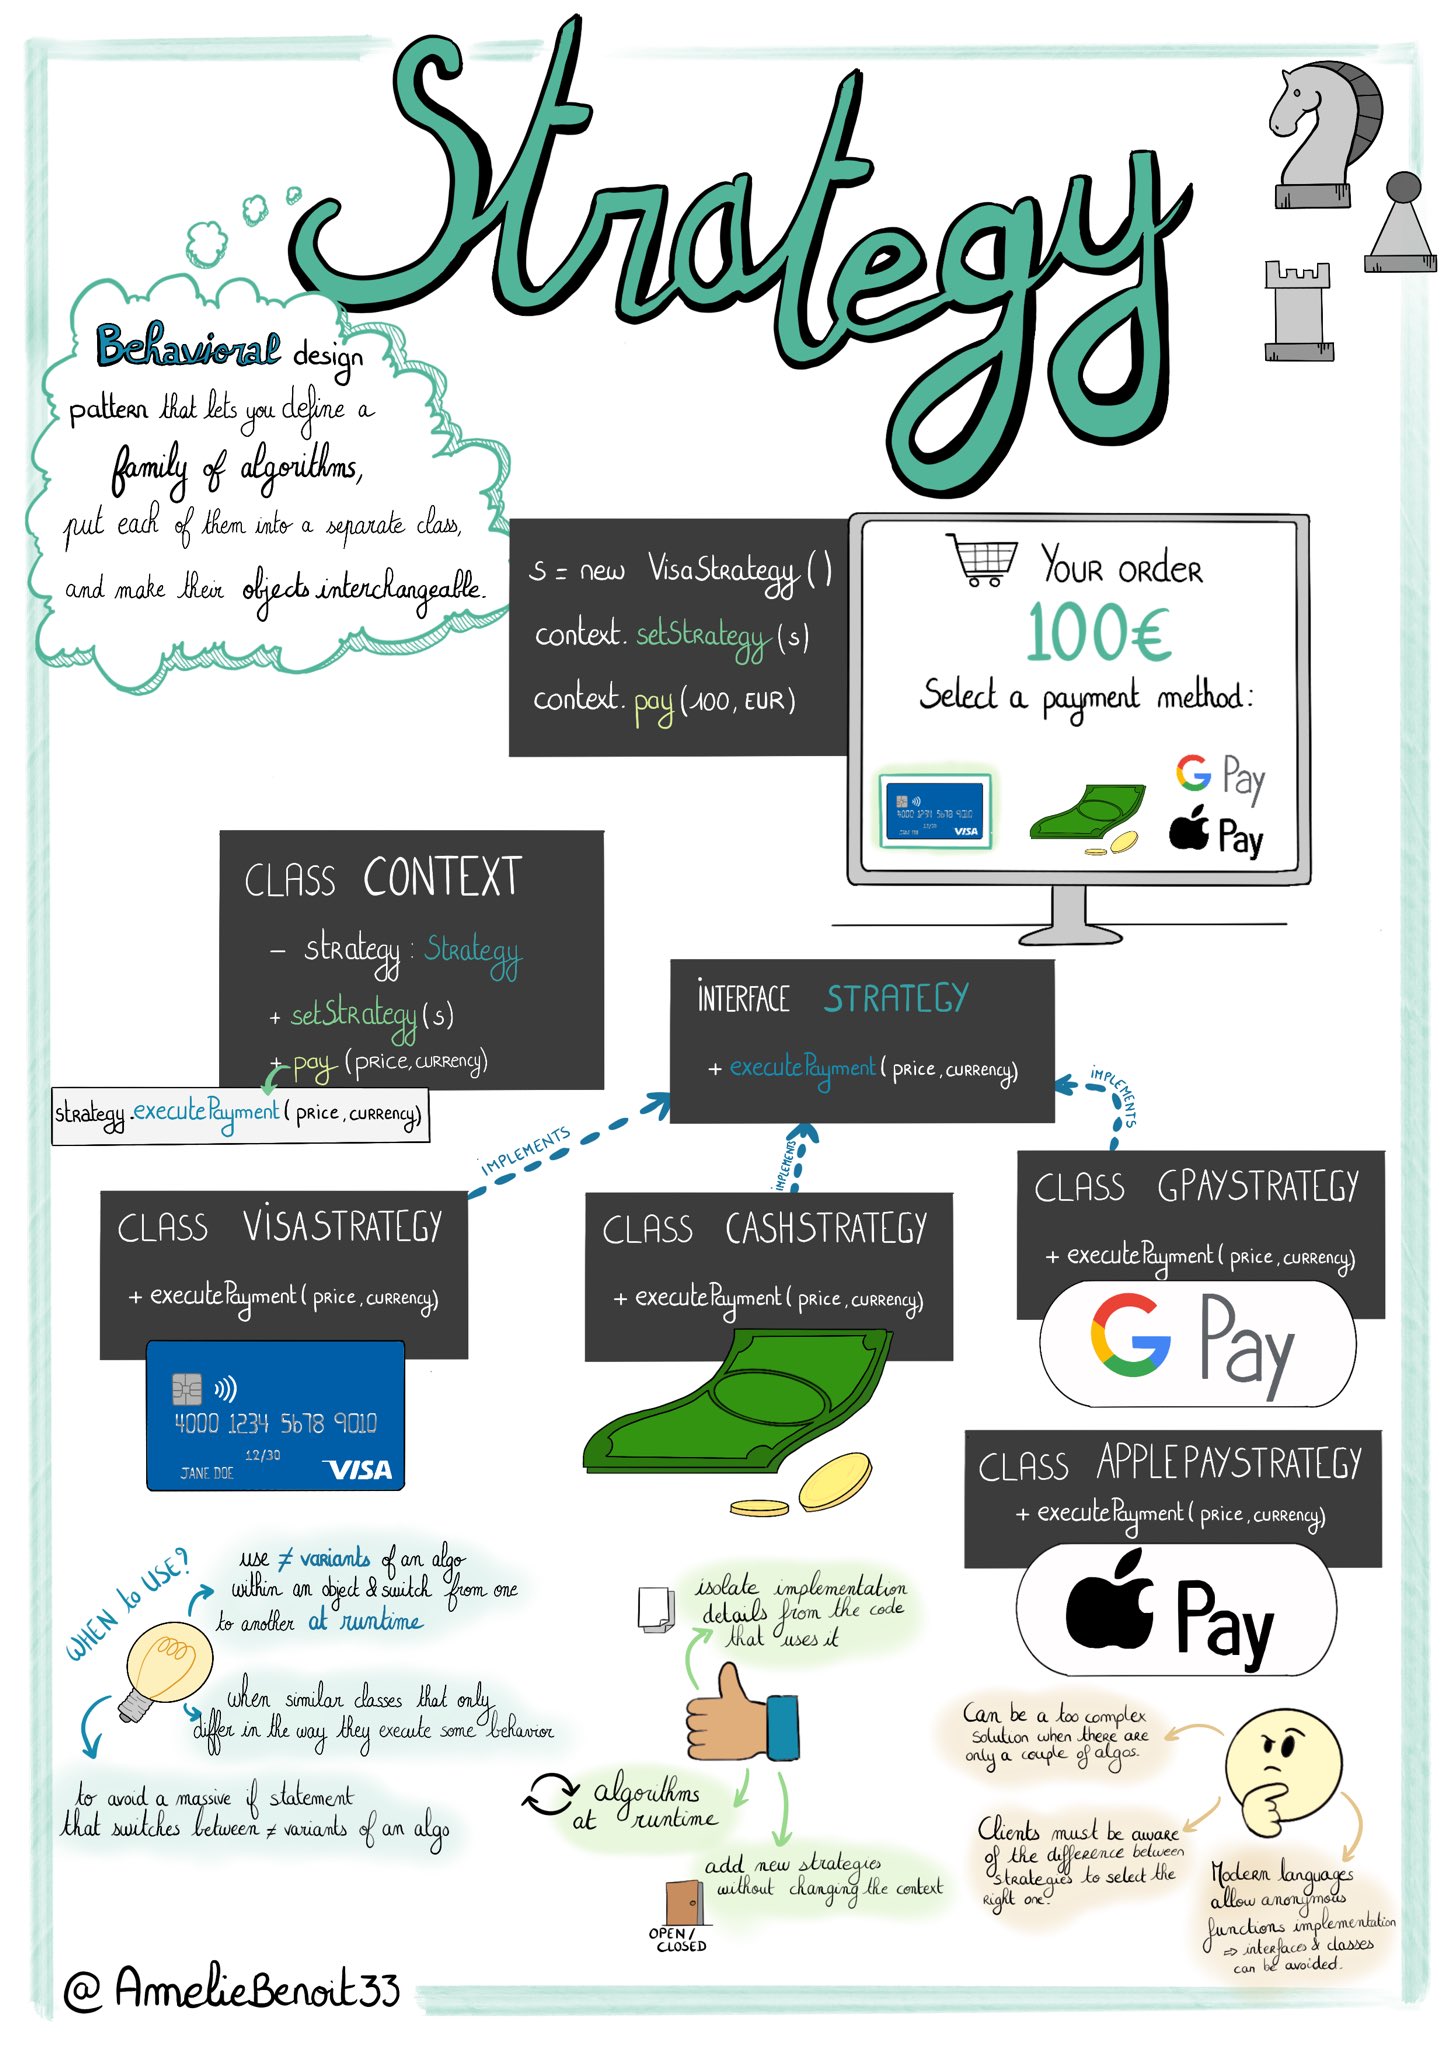 Strategy
Behavioral design
pattern that lets you define a
family of algorithms,
put each of them into a separate class,
and make their objects interchangeable.
s = new VisaStrategy()
context.setStrategy(s)
context.pay(100, EUR)
Your order
100€
Select a payment method:
4000 1234 5678 9010
12/30
JANE DOE
VISA
G Pay
Pay
CLASS CONTEXT
- strategy : Strategy
+ setStrategy(s)
+ pay (price, currency)
strategy.executePayment(price, currency)
INTERFACE STRATEGY
+ executePayment(price, currency)
IMPLEMENTS
IMPLEMENTS
IMPLEMENTS
CLASS VISASTRATEGY
+ executePayment(price, currency)
4000 1234 5678 9010
12/30
JANE DOE
VISA
CLASS CASHSTRATEGY
+ executePayment(price, currency)
CLASS GPAYSTRATEGY
+ executePayment(price, currency)
G Pay
CLASS APPLEPAYSTRATEGY
+ executePayment(price, currency)
Pay
WHEN to USE?
use ≠ variants of an algo
within an object & switch from one
to another at runtime
when similar classes that only
differ in the way they execute some behavior
to avoid a massive if statement
that switches between ≠ variants of an algo
isolate implementation
details from the code
that uses it
algorithms
at runtime
add new strategies
without changing the context
OPEN/
CLOSED
Can be a too complex
solution when there are
only a couple of algos.
Clients must be aware
of the difference between
strategies to select the
right one.
Modern languages
allow anonymous
functions implementation
⇒ interfaces & classes
can be avoided.
@AmelieBenoit33